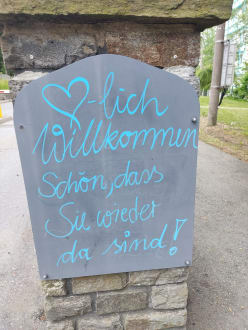 ♡-lich
Willkommen
Schön, dass
Sie wieder
da sind!